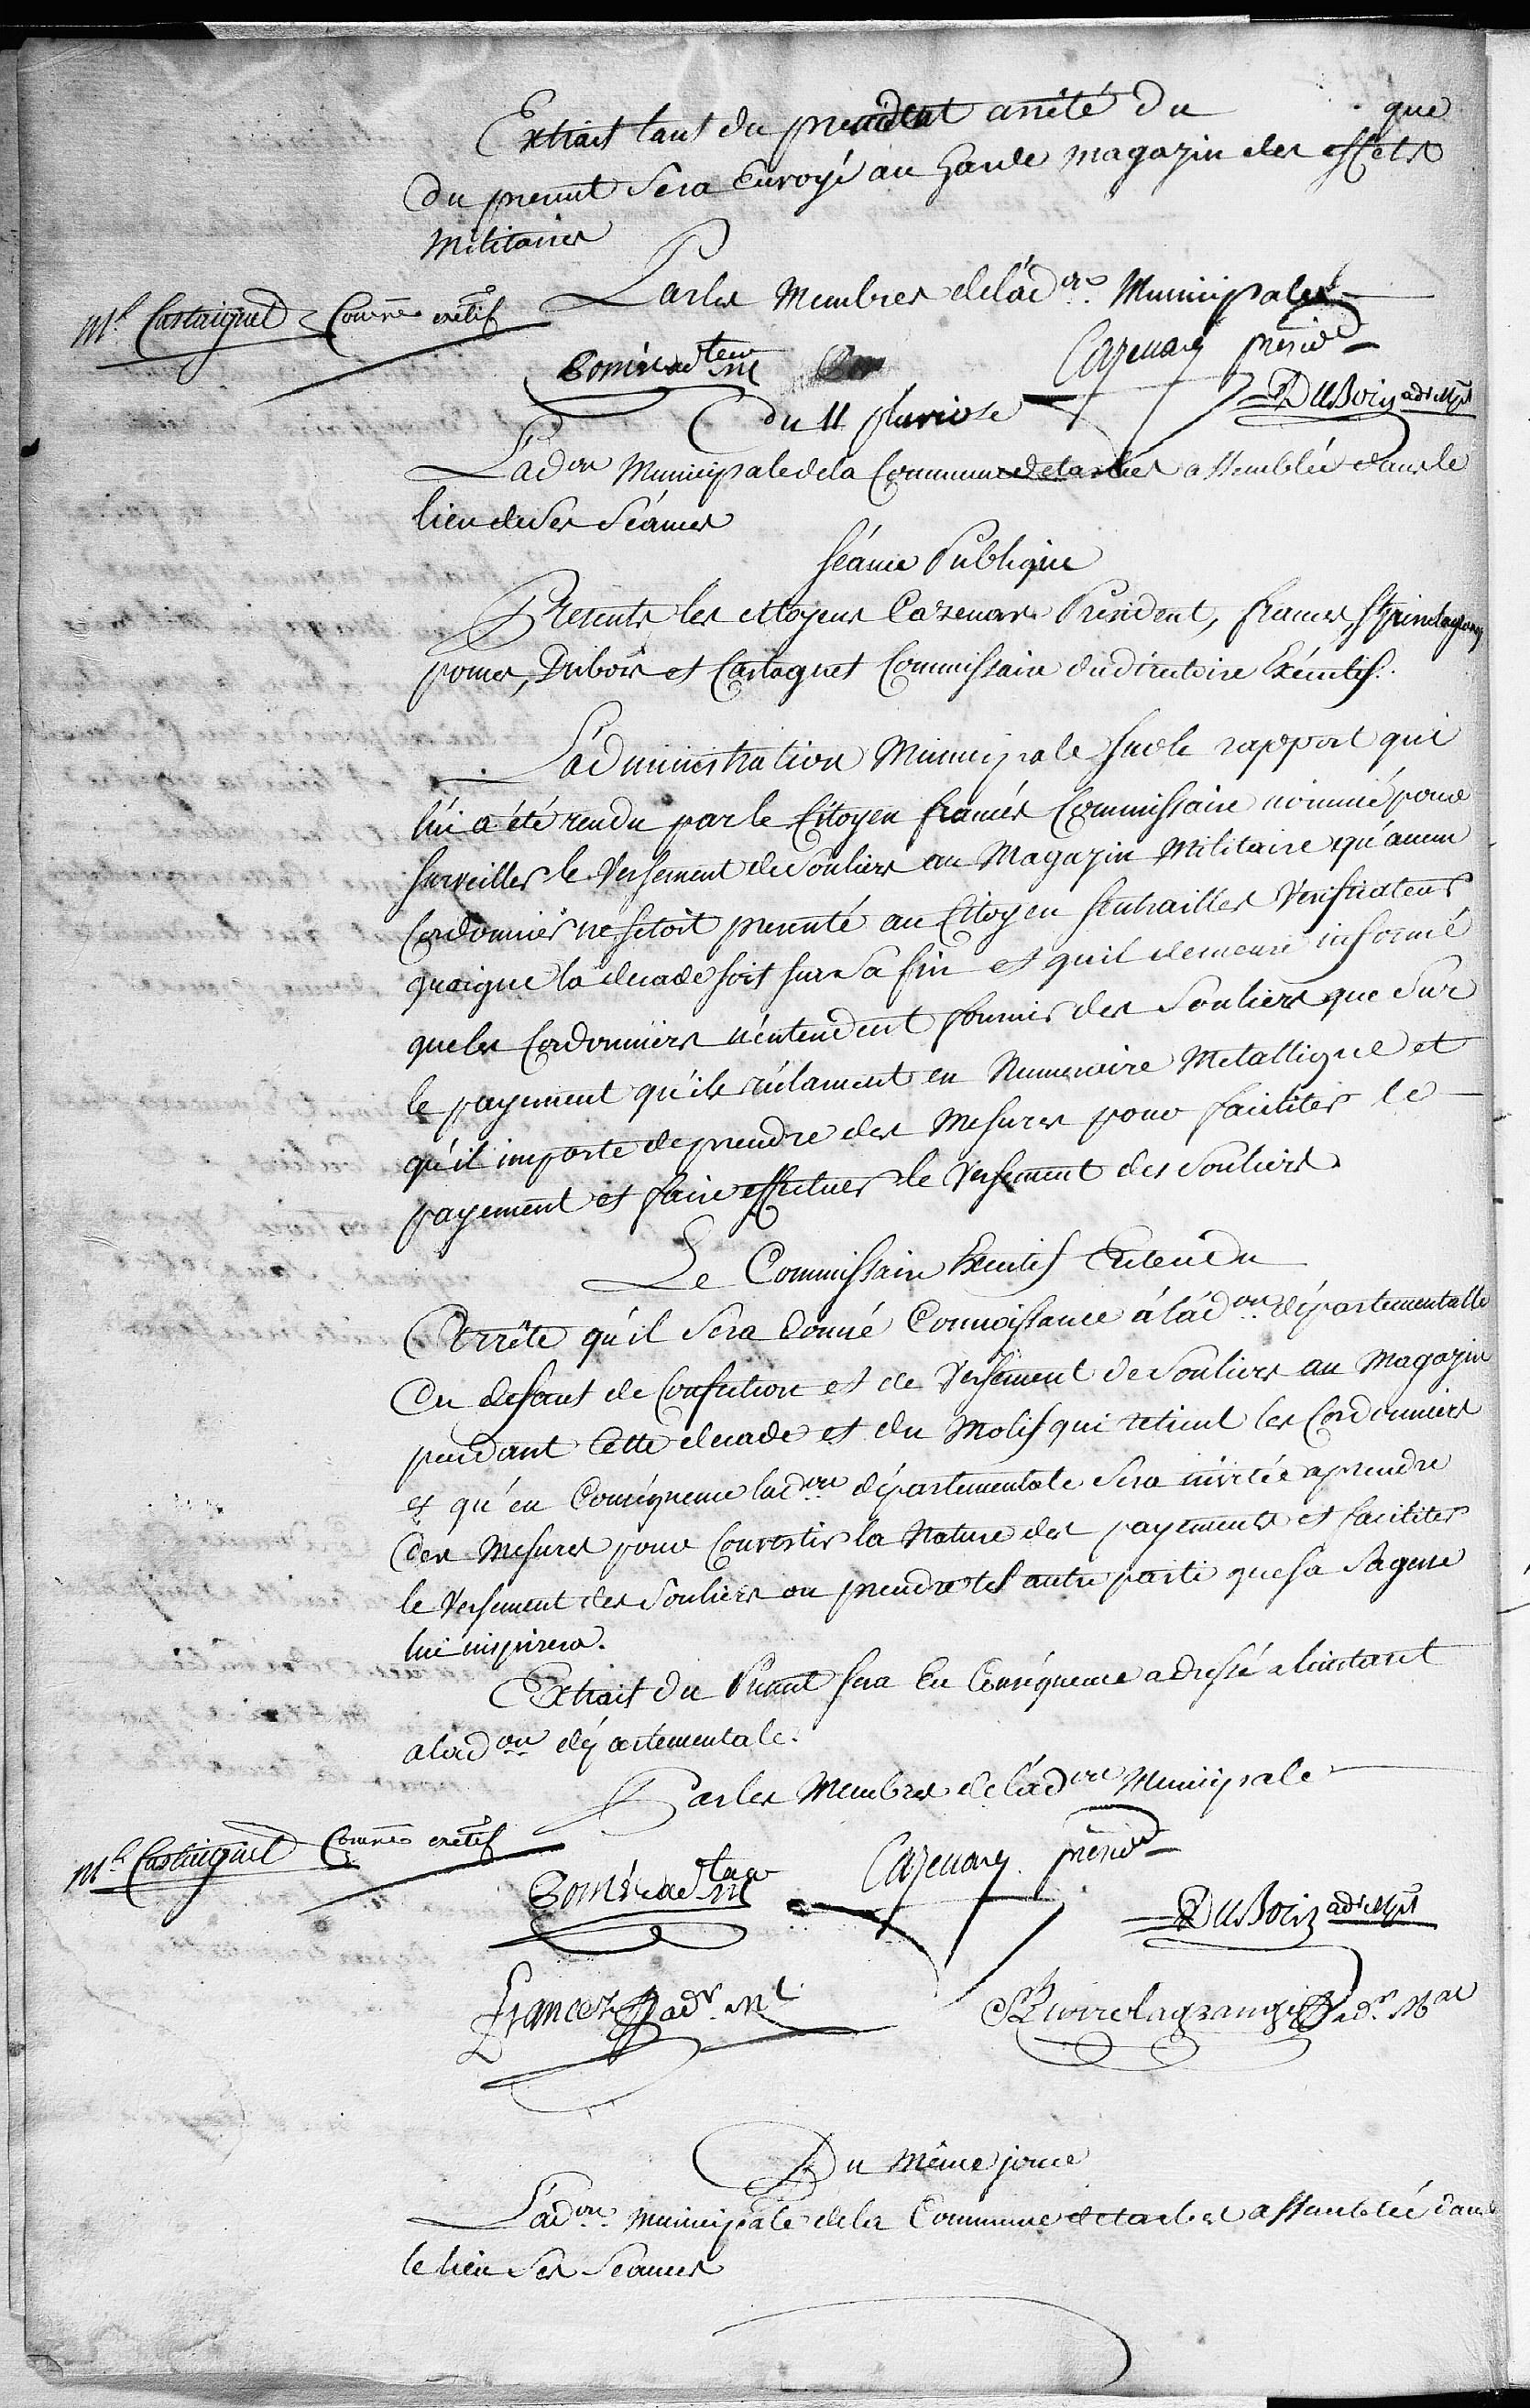 Extrait tant du precedent arrêté du que
du present sera Envoyé au Garde magazin des effets
militaires
Par les Membres de l'ad.on Municipales
Ml Castaignet Comre exetif
Pomés adteur ml
Cazenave présidt
Dubois adr Mpl
Du 11 pluviose
L'adon Municipale de la Commune de tarbes assemblée dans le
lieu de ses Séances
Séance Publique
Presents les citoyens Cazenave President, Frances, St Pierrelagrange
pomes, Dubois et Castagnet Commissaire du directoire Exécutif.
L'administration Municipale sur le rapport qui
lui a été rendu par le Citoyen francés Commissaire nommé pour
surveiller le Versement de Souliers au Magazin Militaire qu'aucun
Cordonnier ne setoit presenté au Citoyen Sentrailles Verificateur
quoique la decade soit sur sa fin et quil demeure informé
que les Cordonniers n'entendent fournir des Souliers que sur
le payement qu'ils reclament en Numeraire Metallique et
qu'il importe de prendre des Mesures pour faciliter le
payement et faire effectuer le Versement des Souliers
Le Commissaire Executif Entendu
Arrête qu'il sera donné Connoissance à l'ad.on départementalle
du defaut de Confection et de Versement de Souliers au Magazin
pendant Cette decade et du Motif qui retient les Cordonniers
et qu'en Conséquence lad.on départementale sera invitée a prendre
des Mesures pour Convertir la Nature des payements et faciliter
le Versement des Souliers ou prendre tel autre parti que sa Sagesse
lui inspirera.
Extrait du Present sera En Conséquence adressé a linstant
a lad.on départementale.
Par les Membres de l'ad.on Municipale
Ml Castaignet Comre exetif
Pomés adteur ml
Cazenave présidt
Dubois adr Mpl
Francez adr ml
St Pierrelagrange adr Mal
Du Même jour
L'ad.on Municipale de la Commune de tarbes assemblée dans
le lieu Ses Seances